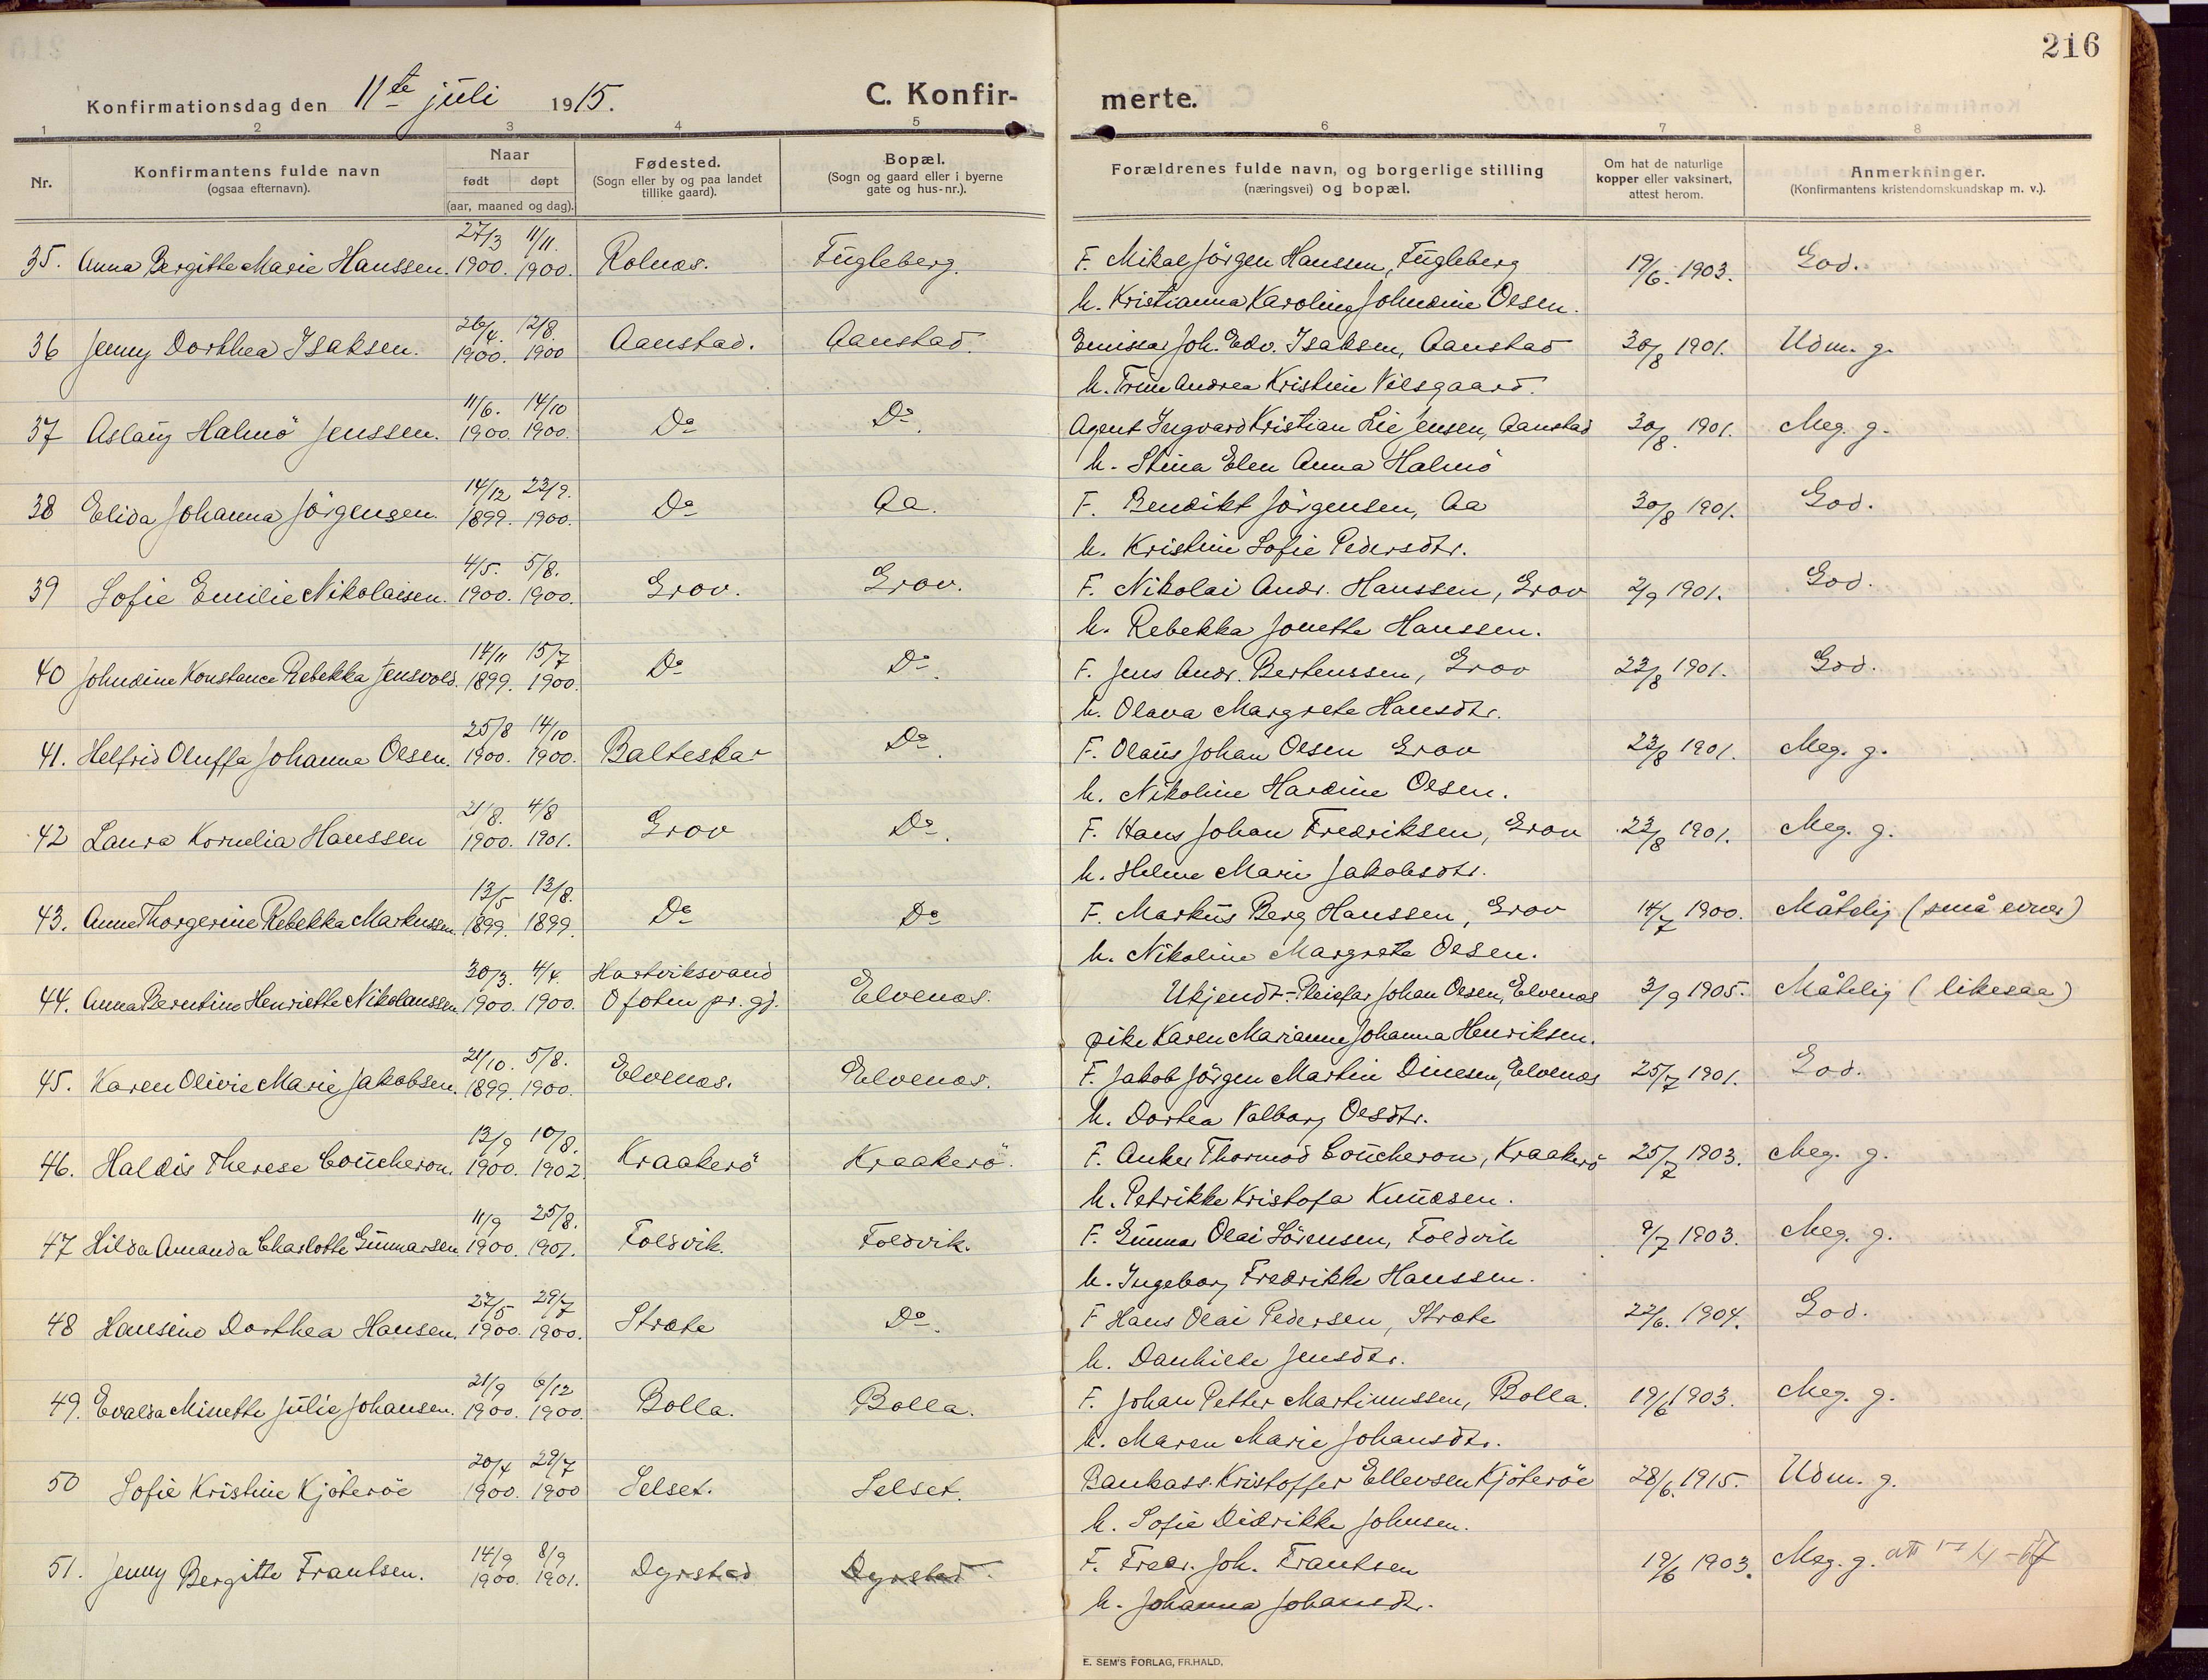 216
Konfirmationsdag den 11te juli 1915.
C. Konfir- merte.
1 2 3 4 5 6 7 8
Nr.
Konfirmantens fulde navn
(ogsaa efternavn).
Naar
født døpt
(aar, maaned og dag).
Fødested.
(Sogn eller by og paa landet
tillike gaard).
Bopæl.
(Sogn og gaard eller i byerne
gate og hus-nr.).
Forældrenes fulde navn, og borgerlige stilling
(næringsvei) og bopæl.
Om hat de naturlige
kopper eller vaksinert,
attest herom.
Anmerkninger.
(Konfirmantens kristendomskundskap m. v.).
35. Anna Bergitte Marie Hanssen. 27/3 1900. 11/11. 1900. Rolnæs. Fugleberg. F. Mikal Jörgen Hanssen, Fugleberg 19/6. 1903. God.
h. Kristianna Karoline Johndine Olsen.
36 Jenny Dorthea Isaksen. 26/4. 1900. 12/8. 1900 Aanstad. Aanstad. Emissær Joh. Edv. Isaksen, Aanstad 30/8 1901. Udm. g.
h. Trine Andrea Kristine Vilsgaard.
37 Aslaug Halmö Jenssen. 11/6. 1900. 14/10 1900. Do Do. Agent Ingvard Kristian Lie Jensen, Aanstad 30/8. 1901. Meg. g.
h. Stina Elen Anna Halmö
38 Elida Johanna Jörgensen. 14/12 1899. 23/9. 1900. Do Aa. F. Bendikt Jörgensen, Aa 30/8 1901. God.
h. Kristine Sofie Pedersdtr.
39 Sofie Emilie Nikolaisen. 4/5. 1900. 5/8. 1900. Grov. Grov. F. Nikolai Andr. Hanssen, Grov 2/9 1901. God.
h. Rebekka Jonette Hanssen.
40 Johndine Konstance Rebekka Jensvold. 14/11 1899. 15/7 1900. Do Do. F. Jens Andr. Bertenssen, Grov 23/8 1901. God.
h. Olava Margrete Hansdtr.
41. Helfrid Oluffa Johanna Olsen. 25/8 1900. 14/10 1900. Balteskar Do. F. Olaus Johan Olsen Grov 23/8 1901. Meg. g.
h. Nikoline Hardine Olsen.
42 Laura Kornelia Hanssen 21/8. 1900. 4/8 1901. Grov Do. F. Hans Johan Fredriksen, Grov 23/8 1901. Meg. g.
h. Helene Marie Jakobsdtr.
43. Anne Thorgerine Rebekka Markussen. 13/5 1899. 13/8. 1899. Do Do F. Markus Berg Hanssen, Grov 14/7 1900. Måtelig (små evner)
h. Nikoline Margrete Olsen.
44. Anna Berntine Henriette Nikolaussen. 30/3. 1900. 4/4. 1900. Hartviksvand Ofoten pr. gj. Elvenes. Ukjendt - Pleiefar Johan Olsen, Elvenes 3/9 1905. Måtelig (likesaa)
pike Karen Marianne Johanna Henriksen.
45. Karen Olivie Marie Jakobsen. 21/10. 1899. 5/8. 1900. Elvenes. Elvenes. F. Jakob Jörgen Martin Dinesen, Elvenes 25/7 1901. God.
h. Dortea Valborg Olsdtr.
46. Haldis Therese Coucheron. 13/9 1900. 10/8. 1902. Kraakerö Kraakerö. F. Anker Thormod Coucheron, Kraakerö 25/7 1903. Meg. g.
h. Petrikke Kristofa Knudsen.
47 Hilda Amanda Charlotte Gunnarsen 11/9 1900. 25/8. 1901. Foldvik. Foldvik. F. Gunnar Olai Sörensen, Foldvik 9/7 1903. Meg. g.
h. Ingeborg Fredrikke Hanssen.
48 Hansine Dorthea Hansen. 27/5 1900. 29/7 1900. Stræte Do. F Hans Olai Pedersen, Stræte 22/6. 1904. God.
h. Danhilde Jensdtr.
49. Evalda Minette Julie Johansen. 21/9 1900. 6/12 1900. Bolla. Bolla. F. Johan Petter Martinussen, Bolla. 19/6 1903. Meg. g.
h. Maren Marie Johansdtr.
50 Sofie Kristine Kjöteröe 20/4 1900. 29/7 1900 Selset. Selset. Bankass. Kristoffer Ellevsen Kjöteröe 28/6. 1915. Udm. g.
h. Sofie Didrikke Johnsen.
51. Jenny Bergitte Frantsen. 14/9 1900. 8/9 1901. Dyrstad Dyrstad. F. Fredr. Joh. Frantsen 19/6 1903. Meg. g.
h. Johanna Johansdtr.
E. SEM'S FORLAG, FR.HALD.